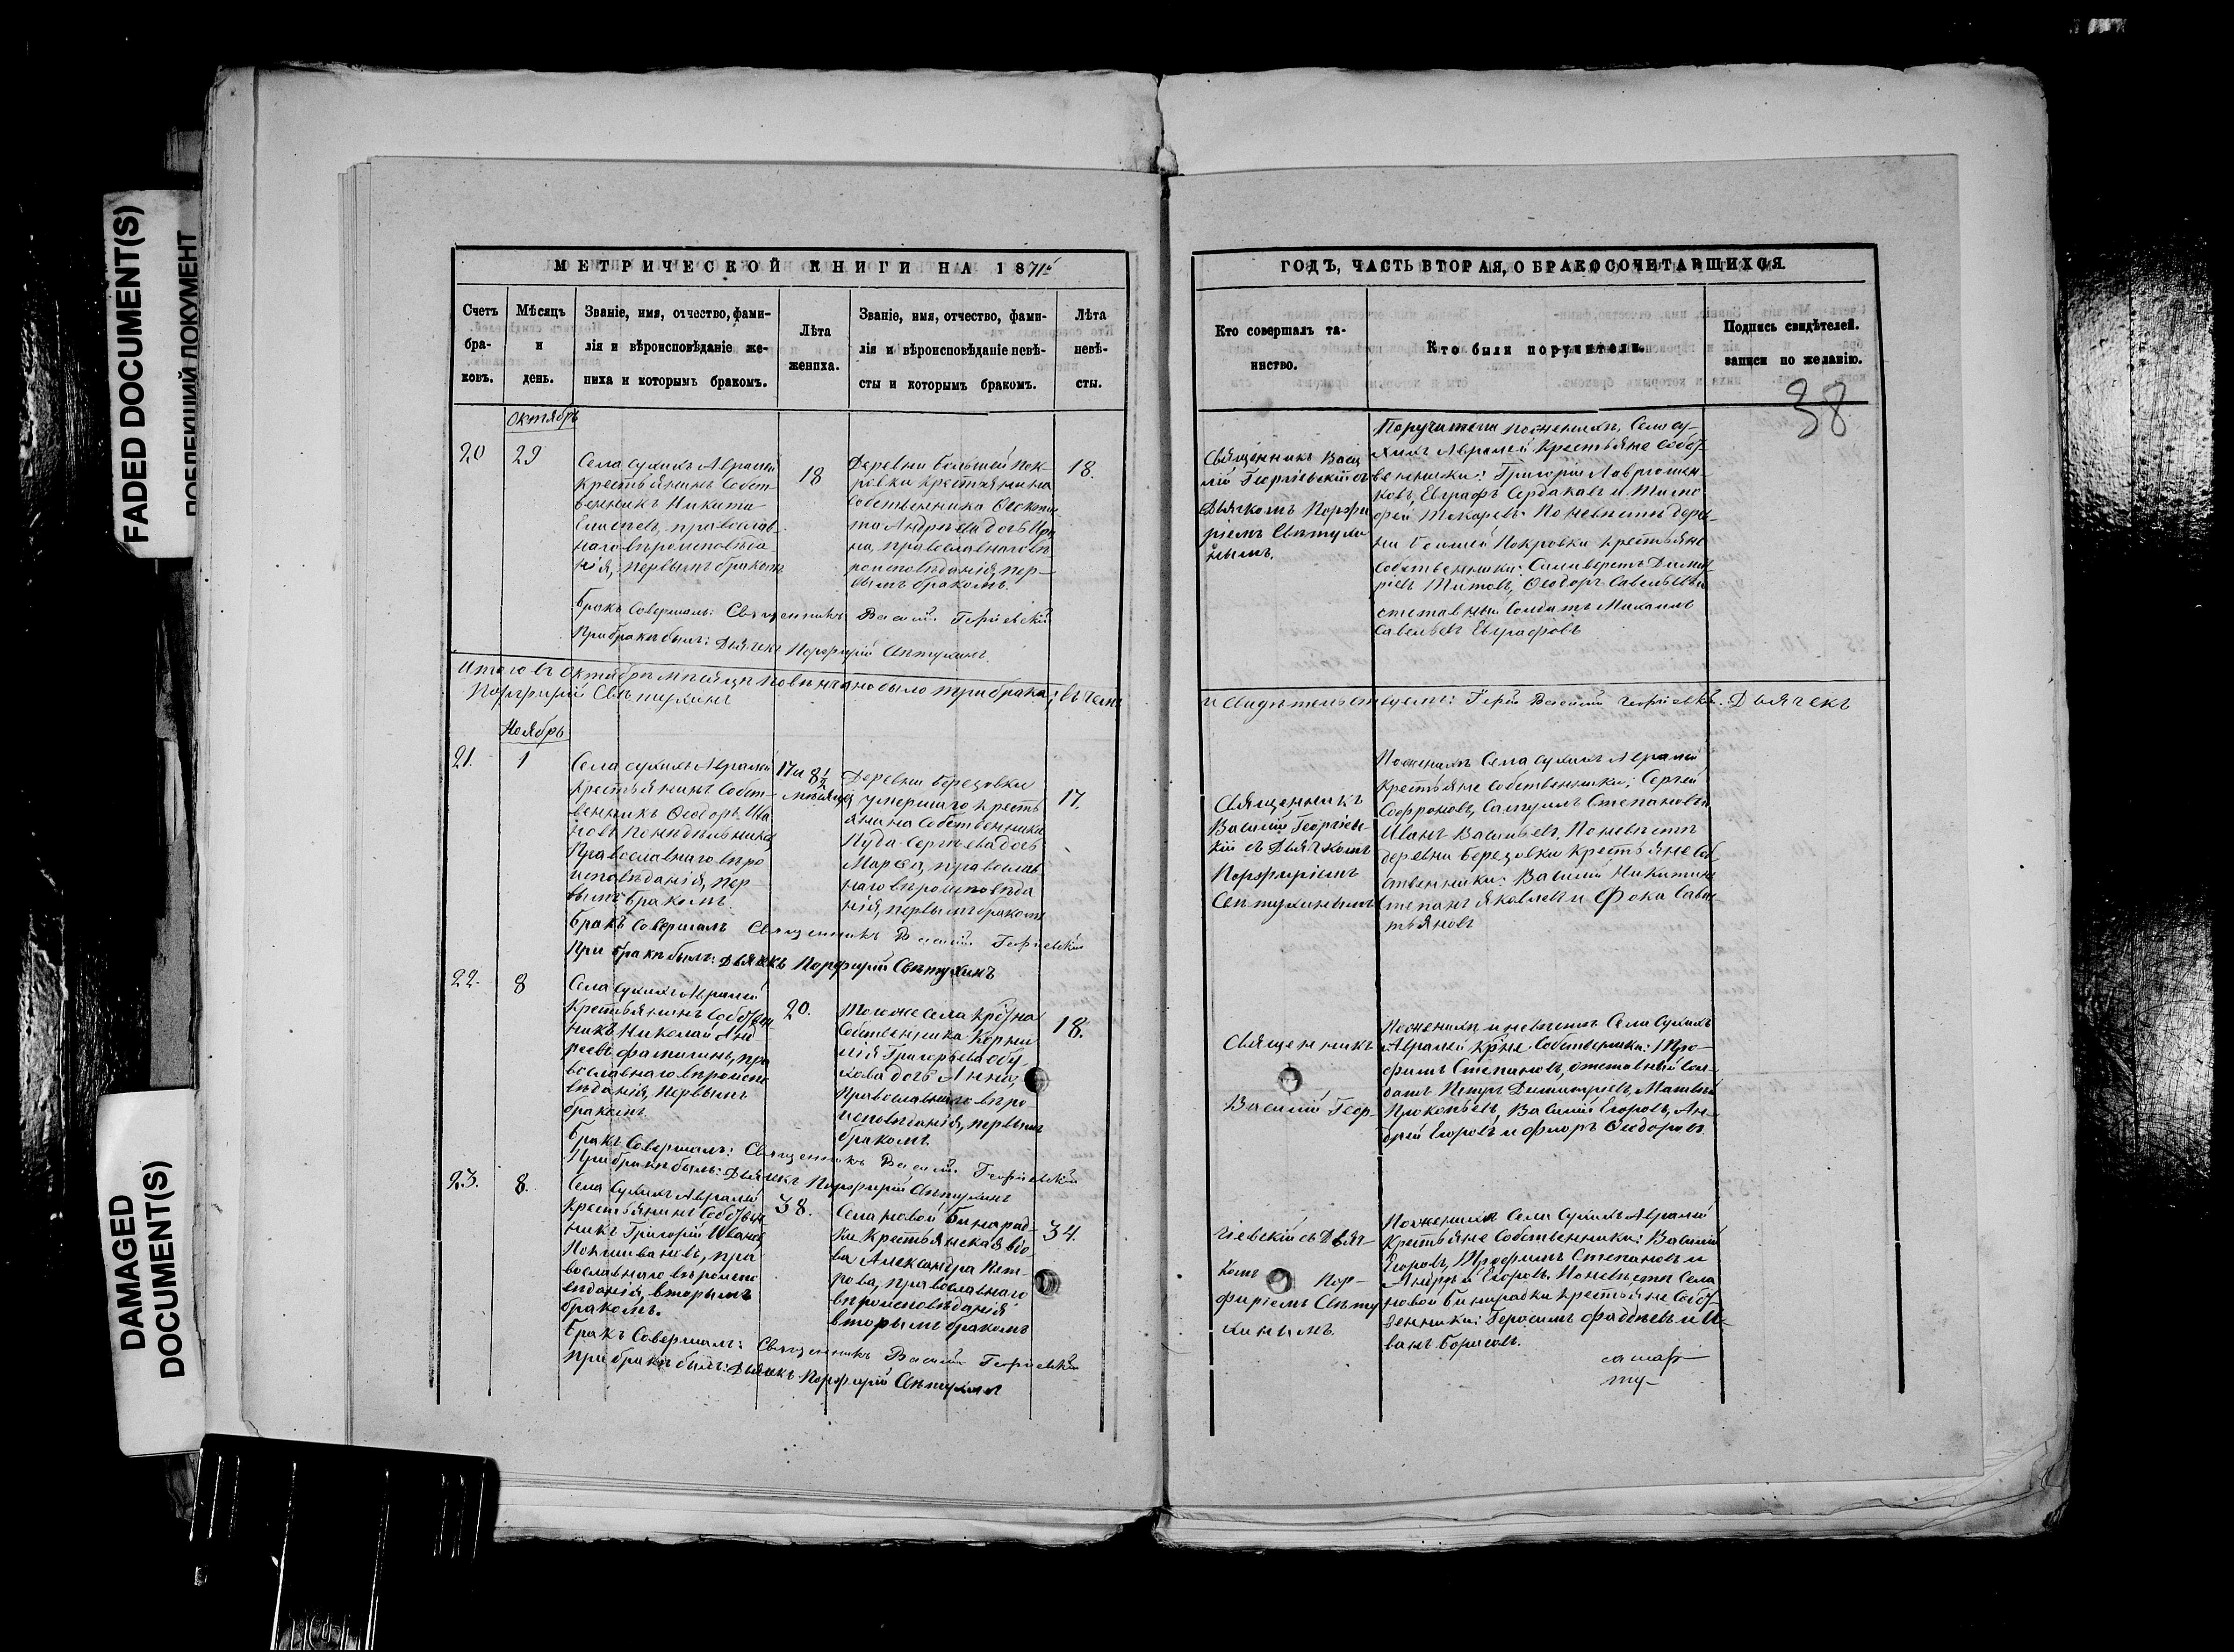 FADED DOCUMENT(S)
DAMAGED
DOCUMENT(S)
МЕТРИЧЕСКОЙ КНИГИ НА 1871
Счетъ бра-ковъ.
Мѣсяцъ и день.
Званіе, имя, отчество, фами-
лія и вѣроисповѣданіе же-
ниха и которымъ бракомъ.
Лѣта
жениха.
Званіе, имя, отчество, фами-
лія и вѣроисповѣданіе невѣ-
сты и которымъ бракомъ.
Лѣта
невѣ-
сты.
Октябрь
20
29
Села Сухихъ Авралей
крестьянинъ собст-
венникъ Никита
православ-
наго вѣроисповѣда-
нія, первымъ бракомъ
18
Деревни Большей Пок-
ровки крестьянина
собственника
Андреева дочь Ири
на, православнаго вѣ
роисповѣданія, пер-
вымъ бракомъ.
18.
Бракъ совершалъ: Священникъ Василій Георгіевскій
При бракѣ былъ: Дьячекъ Порфирій Свѣтухинъ.
Итого въ Октябрѣ мѣсяцѣ повѣнчано было три брака; въ чемъ
Порфирій Свѣтухинъ
Ноябрь
21.
1
Села Сухихъ Авралей
крестьянинъ собст-
венникъ Ѳеодоръ Ива
новъ Понедѣльниковъ
Православнаго вѣро
исповѣданія, пер-
вымъ бракомъ.
17 и 8½
мѣсяцевъ
Деревни Березовки
умершаго кресть
янина собственника
Іуда Сергѣева дочь
Марѳа, православ
наго вѣроисповѣда
нія, первымъ бракомъ
17.
Бракъ совершалъ Священникъ Василій Георгіевскій
При бракѣ былъ: Дьячекъ Порфирій Свѣтухинъ
22.
8
Села Сухихъ Авралей
Крестьянинъ Собствен
никъ Николай Анд
реевъ Фатилинъ, пра
вославнаго вѣроиспо
вѣданія, Первымъ
бракомъ.
20.
Того же села кр-на
Собственника Корни
лія Григорьева Обу
хова дочь Анна,
Православнаго вѣро-
исповѣданія, первымъ
бракомъ.
18.
Бракъ Совершалъ: Священникъ Василій Георгіевскій
При бракѣ былъ: Дьячекъ Порфирій Свѣтухинъ
23.
8.
Села Сухихъ Авралей
Крестьянинъ Собствен
никъ Григорій Ивановъ
пра
вославнаго вѣроиспо
вѣданія, вторымъ
бракомъ.
38.
Села Новой Бинарад-
ки Крестьянская вдо-
ва Александра Пет-
рова, православнаго
вѣроисповѣданія
вторымъ бракомъ
34.
Бракъ Совершалъ: Священникъ Василій Георгіевскій
При бракѣ былъ: Дьячекъ Порфирій Свѣтухинъ
ГОДЪ, ЧАСТЬ ВТОРАЯ, О БРАКОСОЧЕТАВШИХСЯ.
Кто совершалъ та-
инство.
Кто были поручители.
Подпись свидѣтелей.
записи по желанію.
38
Священникъ Васи
лій Георгіевскій съ
Дьячкомъ Порфи
ріемъ Свѣтухи
нымъ.
Поручители по женихѣ, Села Су-
хихъ Авралей Крестьяне собст-
венники: Григорій
Евграфъ Сердаковъ и Тимо
фей Токаревъ. По невѣстѣ дерев-
ни Большей Покровки крестьяне
собственники: Селиверстъ Димит-
ріевъ Титовъ, Ѳеодоръ Савельевъ
отставный Солдатъ Михаилъ
Савельевъ Евграфовъ
и свидѣтельствуемъ: Іерей Василій Георгіевскій. Дьячекъ
Священникъ
Василій Георгіевс-
кій съ Дьячкомъ
Порфиріемъ
Свѣтухинымъ
По женихѣ Села Сухихъ Авралей
Крестьяне собственники; Сергѣй
Софроновъ, Самуилъ Степановъ и
Иванъ Васильевъ. По невѣстѣ
деревни Березовки крестьяне соб
ственники: Василій Никитинъ
Степанъ Яковлевъ и Фока Савас
тьяновъ
Священникъ
Василій Геор-
По женихѣ и невѣстѣ Села Сухихъ
Авралей кр-не Собственники: Тро-
фимъ Степановъ, отставный сол-
датъ Петръ Димитріевъ, Матвѣй
Прокопьевъ, Василій Егоровъ, Ан-
дрей Егоровъ и Флоръ Ѳеодоровъ.
гіевскій съ Дьяч-
комъ Пор-
фиріемъ Свѣту
хинымъ.
По женихѣ Села Сухихъ Авралей
Крестьяне Собственники: Василій
Егоровъ, Трофимъ Степановъ и
Андрей Егоровъ. По невѣстѣ Села
Новой Бинарадки крестьяне Собст-
венники: Герасимъ Фаддѣевъ и И-
ванъ Борисовъ.